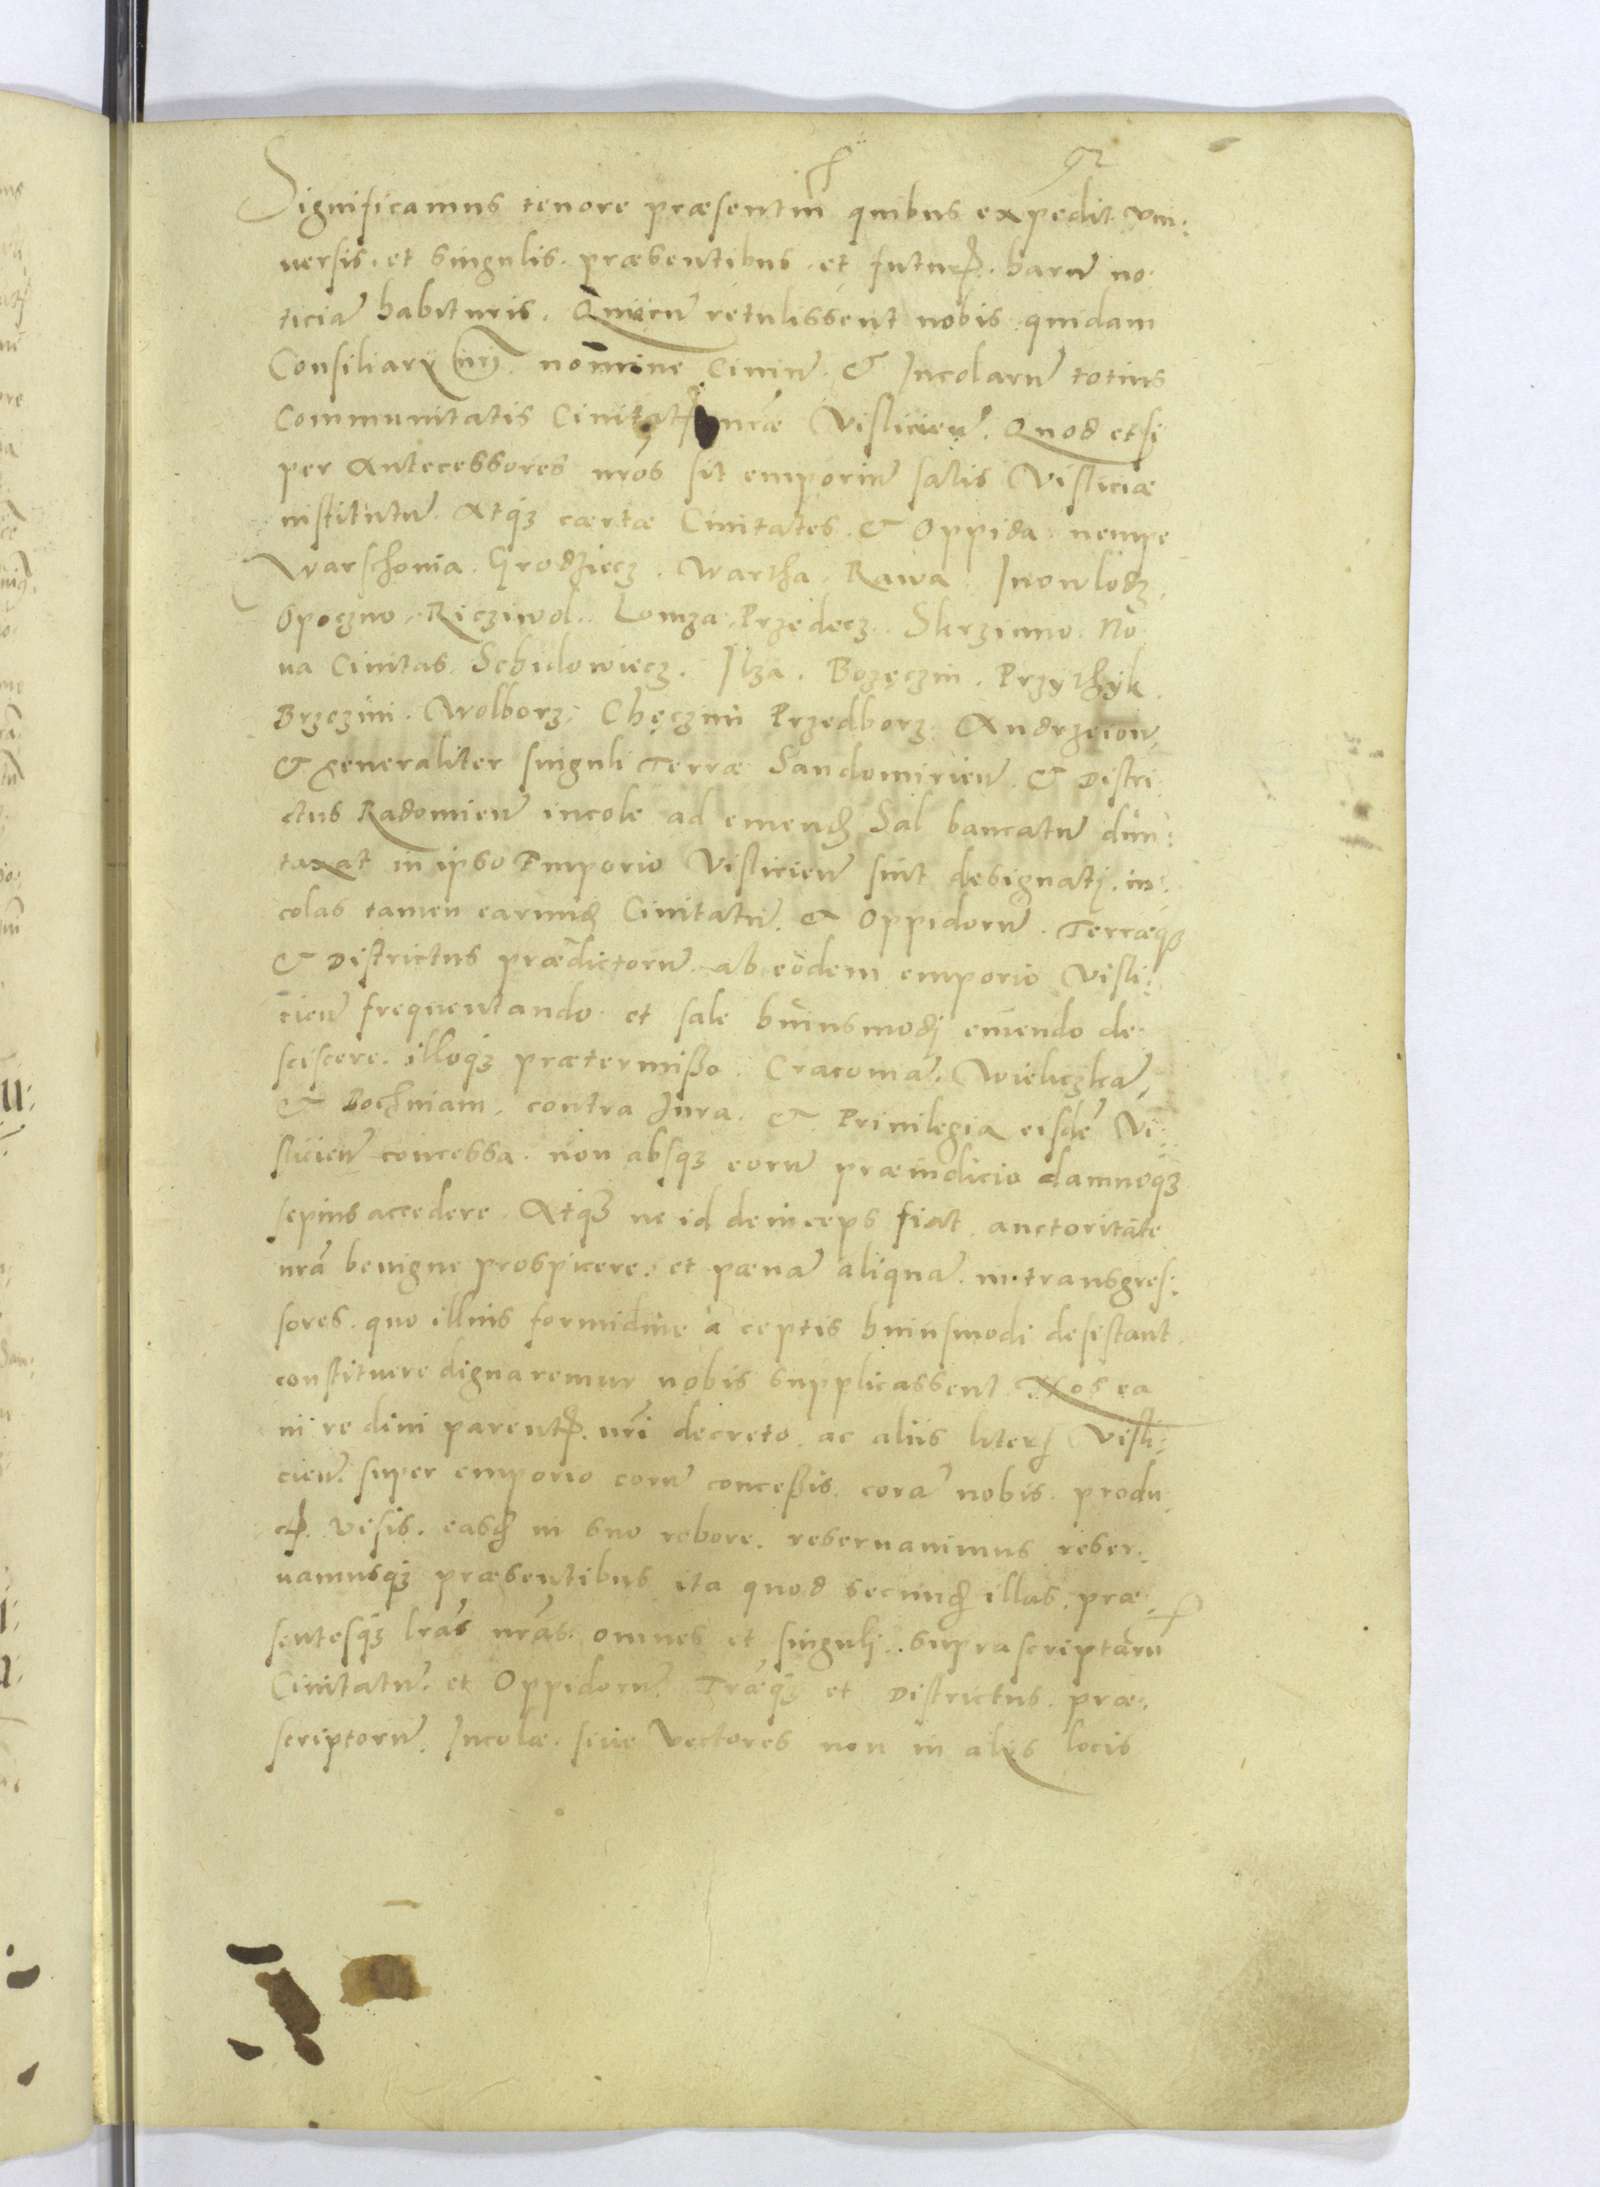 Significamus tenore præsentiũ quibus expedit vni:
uersis. et singulis. præsentibus. et futuꝝ. harũ no.
ticiã habituris. Quiecũ retulissent nobis quidam
Consiliarÿ nr̃i nomine Ciuiũ. & Incolarũ totius
Communitatis Ciuitat nr̃æ Visliciẽn. Quod etsi
per Antecessores nr̃os sit emporiũ salis Visliciæ
institutũ. Atqꝫ cærtæ Ciuitates. & Oppida nempe
Warschouia. Grodziecz. Wartha. Rawa. Inowlodz.
Opoczno. Ricziwol. Lomza. Przedecz. Skrzinno. No
ua Ciuitas. Schidowiecz. Ilza. Bozęczin. Przythyk.
Brzezini. Wolborz. Chęczini Przedborz. Andrzeiow,
& generaliter singuli Terræ Sandomiriẽn. & Distri
ctus Radomiẽn incole ad emend Sal bancatũ dun:
taxat in ipso Emporio Visliciẽn sint designatj. in
colas tamen earund Ciuitatũ. & Oppidorũ. Terræqꝫ
& Districtus prædictorũ. ab eodem emporio Visli:
ciẽn frequentando et sale huiusmodj emendo de
sciscere. illoqꝫ prætermißo. Cracouiã. Wieliczkã,
& Bochniam, contra Jura. & Priuilegia eisdẽ Vi
sliciẽn concessa. non absqꝫ eorũ præiudicio damnoqꝫ
sepius accedere. Atqꝫ ne id deinceps fiat auctoritate
nr̃a benigne prospicere. et pænã aliquã. in transgres:
sores. quo illius formidine à ceptis huiusmodi desistant
constituere dignaremur nobis supplicassent. Nos ea
in re diui parentꝭ. nr̃i decreto. ac aliis literꝭ Visli:
ciẽn. super emporio eorũ conceßis. corã nobis. produ
ctꝭ. visis. easd in suo robore. reseruauimus reser:
uamusqꝫ præsentibus ita quod secund illas. præ.
sentesqꝫ lr̃as nr̃as. omnes et singulj. suprascriptarũ
Ciuitatũ. et Oppidorũ. Tr̃æqꝫ et Districtus. præ.
scriptorũ. Incolæ. siue Vectores non in alÿs locis